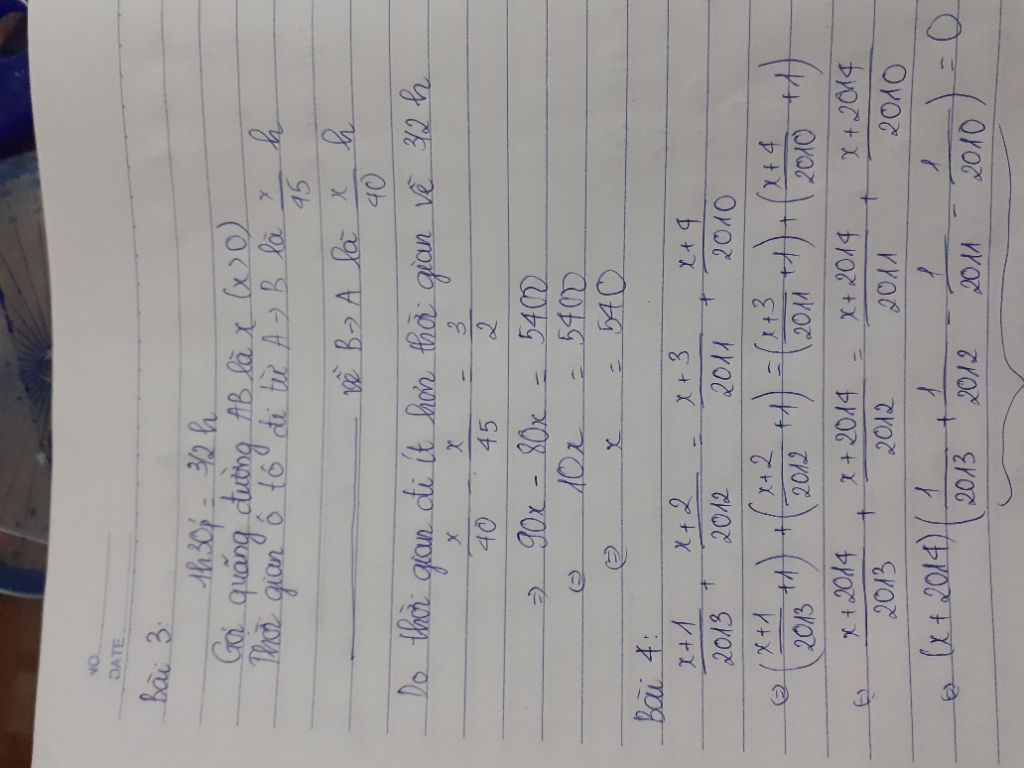 NO.
DATE
Bài 3:
1h30p = 3/2 h
Gọi quãng đường AB là x (x>0)
Thời gian ô tô đi từ A→B là x/45 h
về B→A là x/40 h
Do thời gian đi ít hơn thời gian về 3/2 h
x/40 - x/45 = 3/2
⇒ 90x - 80x = 5400
⇔ 10x = 5400
⇔ x = 540
Bài 4:
(x+1)/2013 + (x+2)/2012 = (x+3)/2011 + (x+4)/2010
⇔ ((x+1)/2013 +1) + ((x+2)/2012 +1) = ((x+3)/2011 +1) + ((x+4)/2010 +1)
⇔ (x+2014)/2013 + (x+2014)/2012 = (x+2014)/2011 + (x+2014)/2010
⇔ (x+2014)(1/2013 + 1/2012 - 1/2011 - 1/2010) = 0